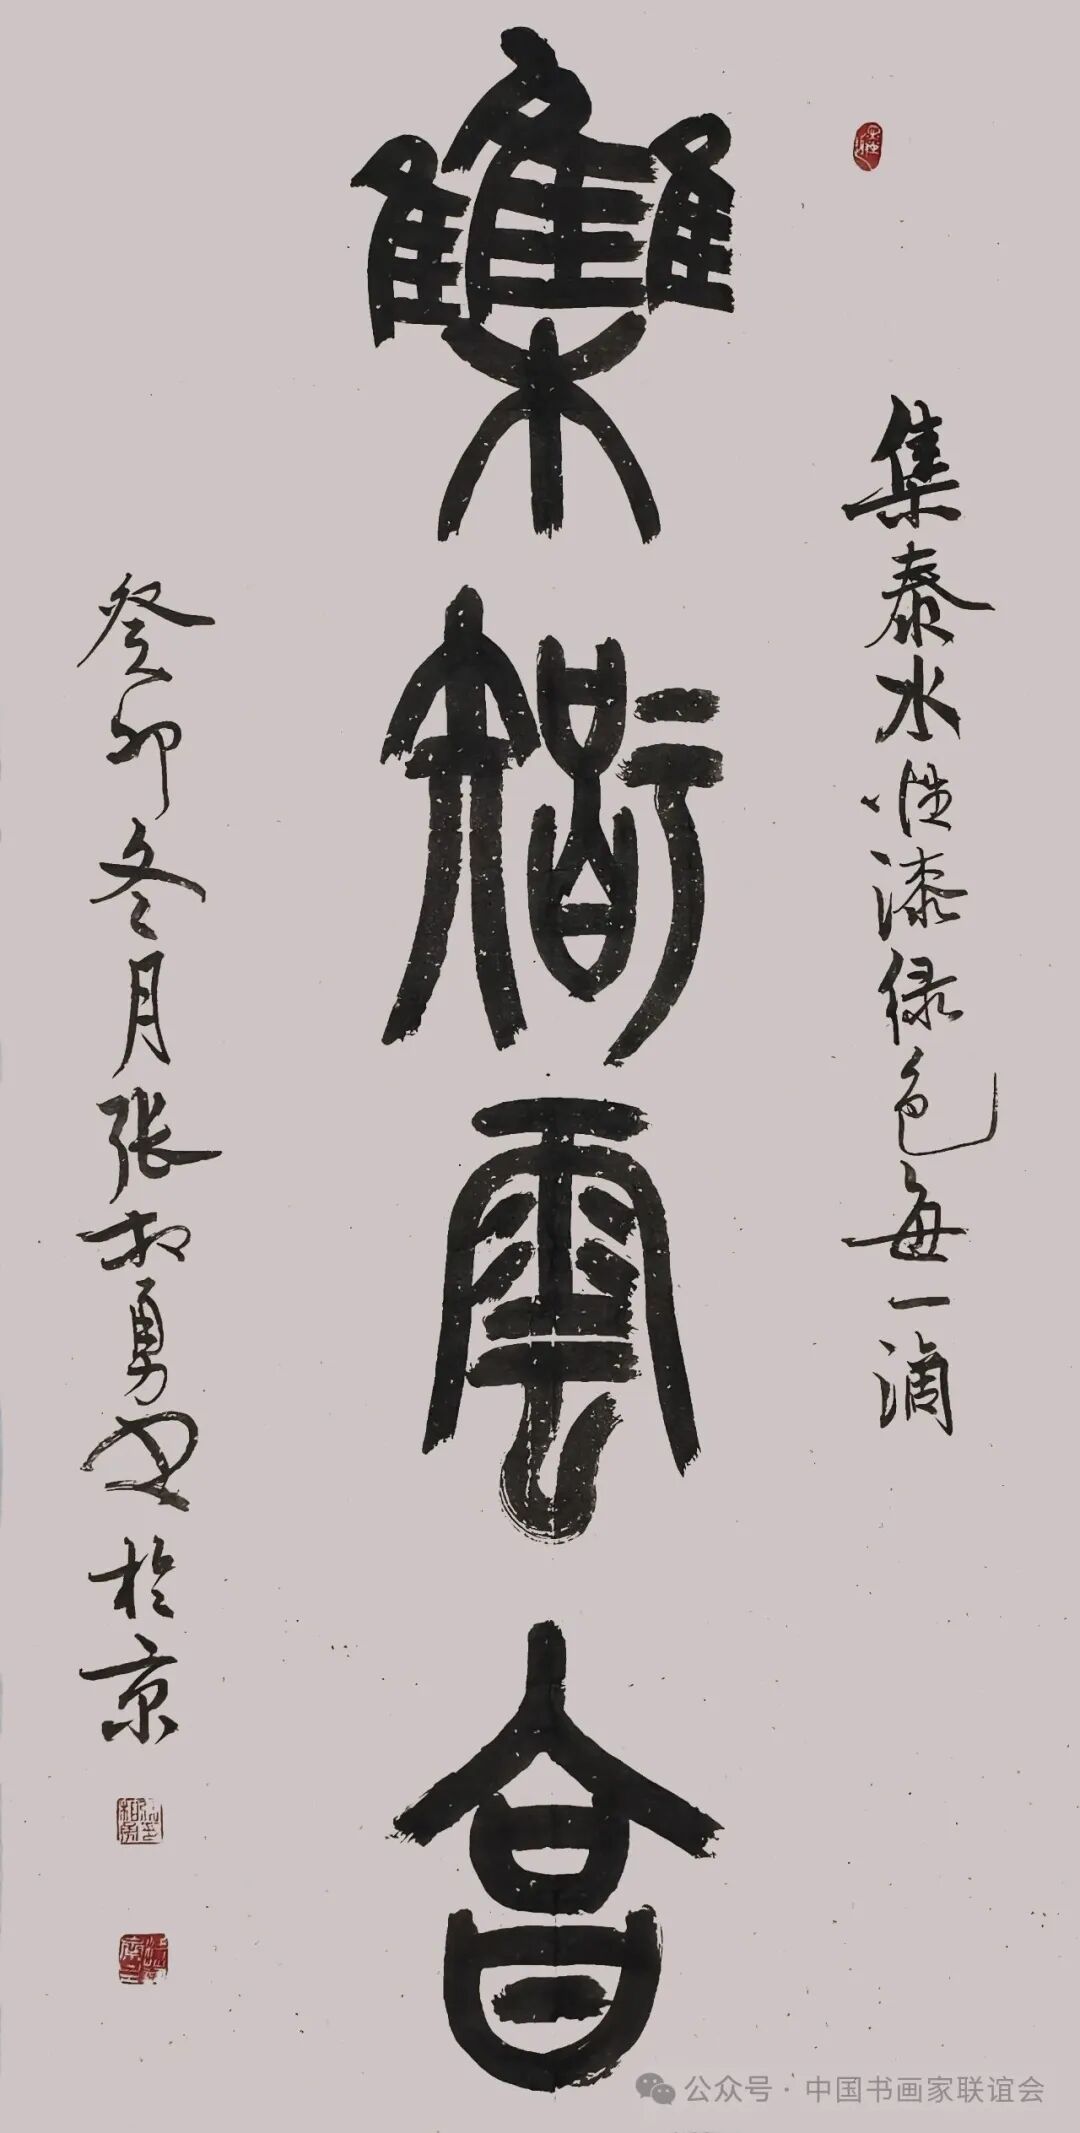 集泰水性漆绿色每一滴
集智雲享
癸卯冬月张相勇书於京
公众号·中国书画家联谊会